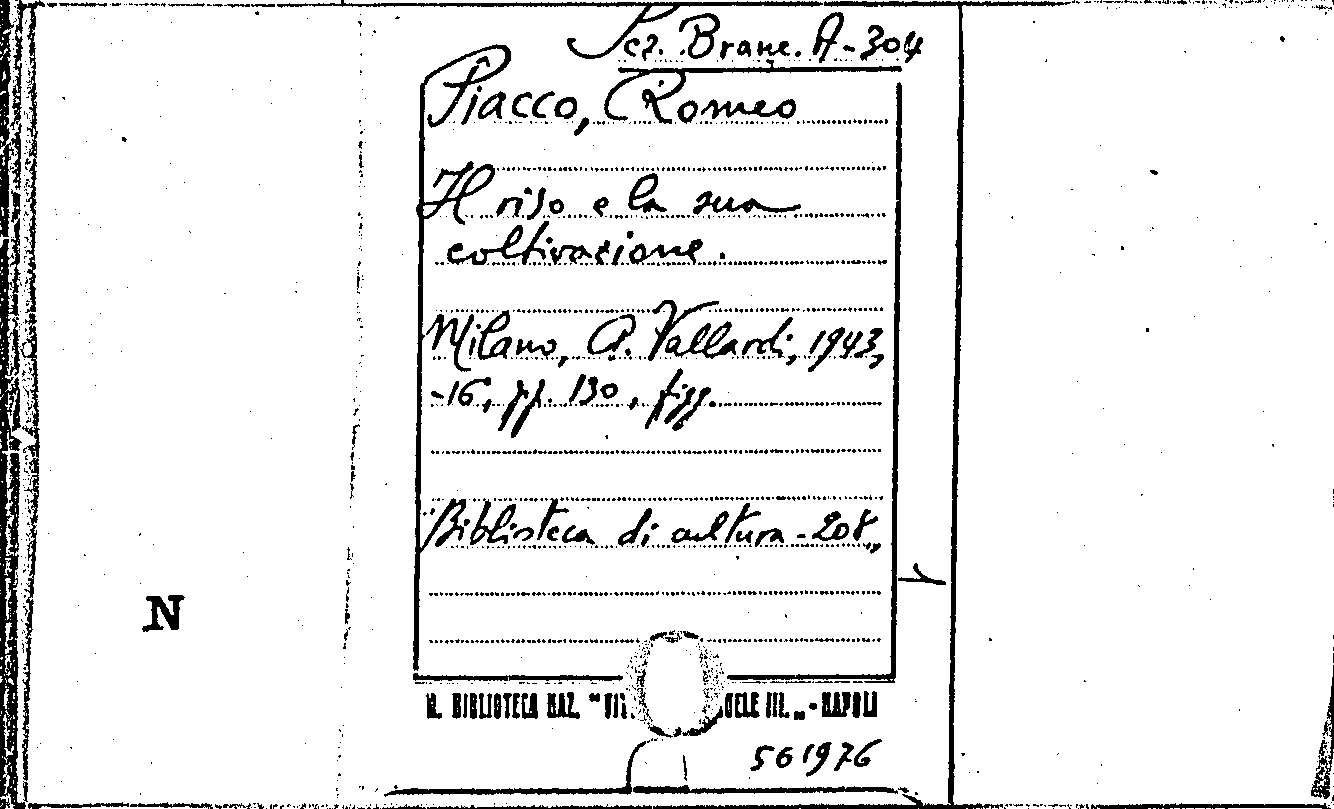 Sez. Branc. A-304
Piacco, Romeo
Il riso e la sua
coltivazione.
Milano, A. Vallardi, 1943,
-16, pp. 130, figg.
Biblioteca di cultura - 208„
N
R. BIBLIOTECA NAZ. "VIT UELE III.„ - NAPOLI
561976